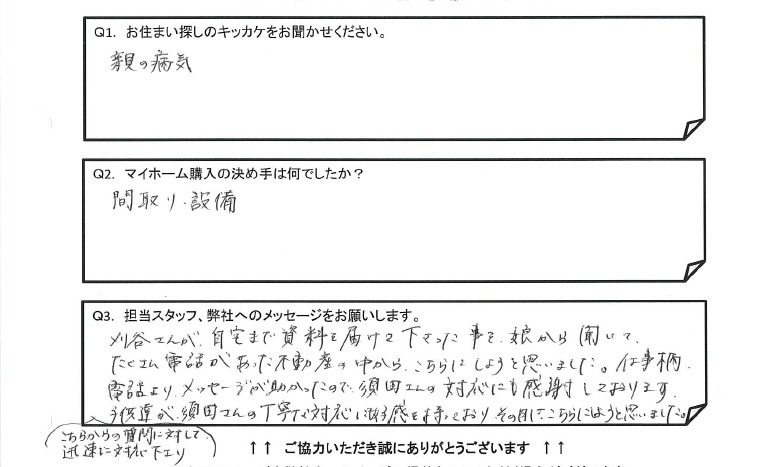 Q1. お住まい探しのキッカケをお聞かせください。
親の病気
Q2. マイホーム購入の決め手は何でしたか？
間取り、設備
Q3. 担当スタッフ、弊社へのメッセージをお願いします。
刈谷さんが、自宅まで資料を届けて下さった事を、娘から聞いて、
たくさん電話があった不動産の中から、こちらにしようと思いました。仕事柄、
電話より、メッセージが助かったので、須田さんの対応にも感謝しております。
子供達が、須田さんの丁寧な対応に好感を持っており、その日にこちらにしようと思いました。
こちらからの質問に対して
迅速に対応下さり
↑↑ ご協力いただき誠にありがとうございます ↑↑